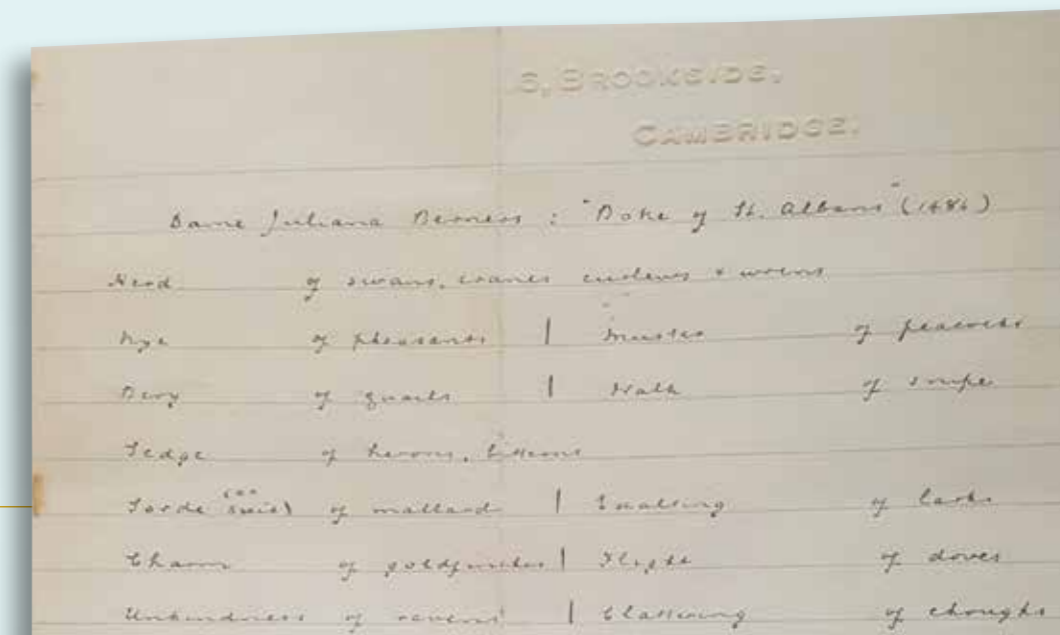 6, BROOKSIDE,
CAMBRIDGE.
Dame Juliana Berners : "Boke of St. Albans" (1486)
Herd of swans, cranes curlews & wrens
Nye of pheasants | Muster of peacocks
Bevy of quails | Walk of snipe
Sedge of herons, bitterns
Sorde (or suie) of mallard | Exalting of larks
Charm of goldfinches | Flight of doves
Unkindness of ravens | Clattering of choughs